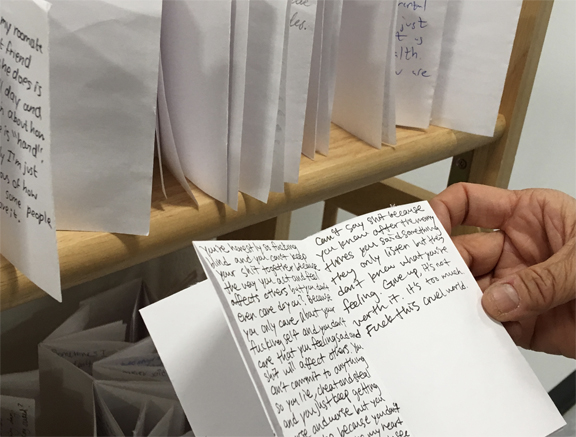 my roomate
friend
she does is
day and
about how
is "hand!"
I'm just
of how
some people
les.
just
is
alth
are
You're honestly a fucking
blind and you can't keep
your shit together because
the way you act and feel
affects others but you don't
even care do you? Because
you only care about your
fucking self and you don't
care that you feeling sad and
shit will affect others. You
can't commit to anything
so you lie, cheat and steal
and you just keep getting
worse and worse but you
because you don't
my heart
Can't say shit because
you know after the many
times you said something
they only listen but they
don't know what you're
feeling. Give up, it's not
worth it. It's too much
Fuck this cruel world.